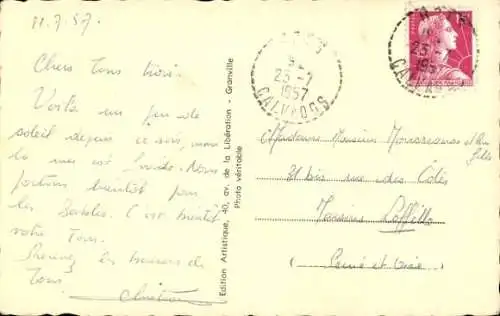 11.7.57.
Chers Tous trois.
Voilà un peu de
soleil depuis ce soir, mais
la mer est froide. Nous
partons bientôt pour
les Sables. C'est bientôt
votre Tour.
Prenez les
Tous.
Christian
Edition Artistique, 40, av. de la Libération - Granville
Photo véritable
23-7
1957
CALVADOS
23-7
1957
CALVADOS
Madame Monsieur et leur
fille
31 bis rue des Côtes
Maisons Laffitte
(Seine et Oise)